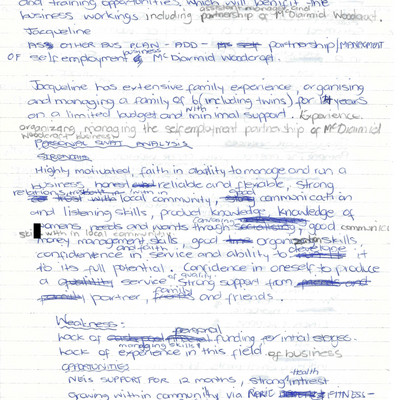 and training opportunities, which will benefit the
assistant manager and
business workings including partnership of McDiarmid Woodcraft.
Jacqueline
AS OTHER BUS PLAN - ADD - partnership/MANAGEMENT
business
OF self employment McDiarmid Woodcraft.
Jacqueline has extensive family experience, organising
and managing a family of 6 (including twins) for 14 years
with
on a limited budget and minimal support. Experience
organizing, managing the self employment partnership of McDiarmid
Woodcraft business
PERSONAL SWOT ANALYSIS
STRENGTHS
Highly motivated, faith in ability to manage and run a
business, honest reliable and flexible, strong
relations
good
local community, strong communication
and listening skills, product knowledge knowledge of
needs and wants through good communic
skills with in local community
money management skills good organization skills,
and faith
develope
confidentence in service and ability to it
to its full potential. Confidence in oneself to produce
of quality
a service, strong support from
family
partner, and friends.
Weakness:
personal
Lack of funding for initial stages.
managing skills
Lack of experience in this field of business
OPPORTUNITIES
Health
NEIS SUPPORT FOR 12 months, strong interest
growing within community via FITNESS-